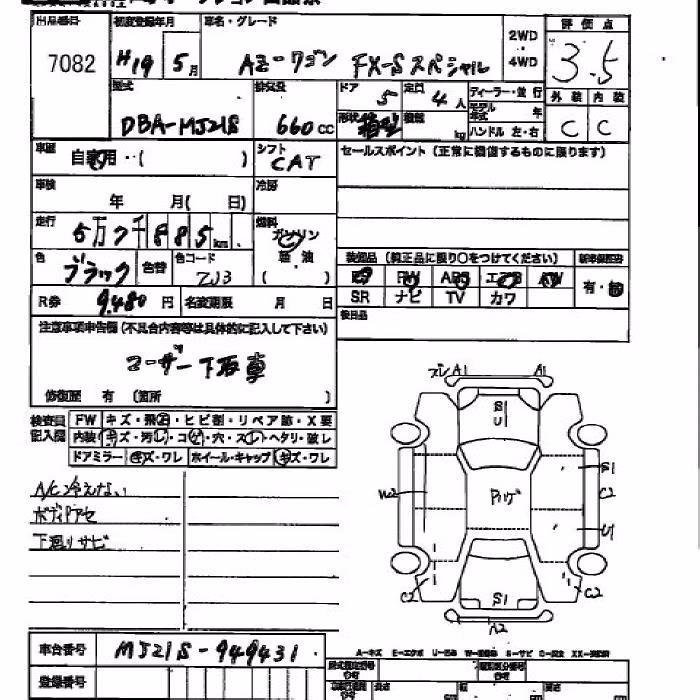 出品番号 初度登録年月 車名・グレード 2WD 評価点
7082 H19年 5月 AZ-ワゴン FX-Sスペシャル 4WD 3.5
型式 排気量 ドア 5 定員 4人 ディーラー・並行 外装 内装
DBA-MJ21S 660cc 形状 箱型 積載 kg モデル年式 年 ハンドル 左・右 C C
車歴 自家用・( ) シフト CAT セールスポイント (正常に機能するものに限ります)
車検 年 月( 日) 冷房
走行 5万7千885km 燃料 ガソリン 軽油 ( )
色 ブラック 色替 色コード ZJ3
装備品 (純正品に限り○をつけてください) 新車保証書
PS PW ABS エアB AW 有・無
SR ナビ TV カワ
R券 9,480円 名変期限 月 日
後日品
注意事項申告欄(不具合内容等は具体的に記入して下さい)
ユーザー下取車
修復歴 有 (箇所 )
検査員記入欄 FW キズ・飛石・ヒビ割・リペア跡・X要
内装 キズ・汚レ・コゲ・穴・スレ・ヘタリ・破レ
ドアミラー キズ・ワレ ホイール・キャップ キズ・ワレ
A/C冷えない
ボディ色アセ
下廻りサビ
ズレ A1 A1
S U
S1
W2 C2
U1
C2 C2
S1
A2
車台番号 MJ21S-949431
登録番号
A-キズ E-エクボ U-凹 S-サビ C-腐食
型式指定番号 類別区分番号
長さ 幅 高さ